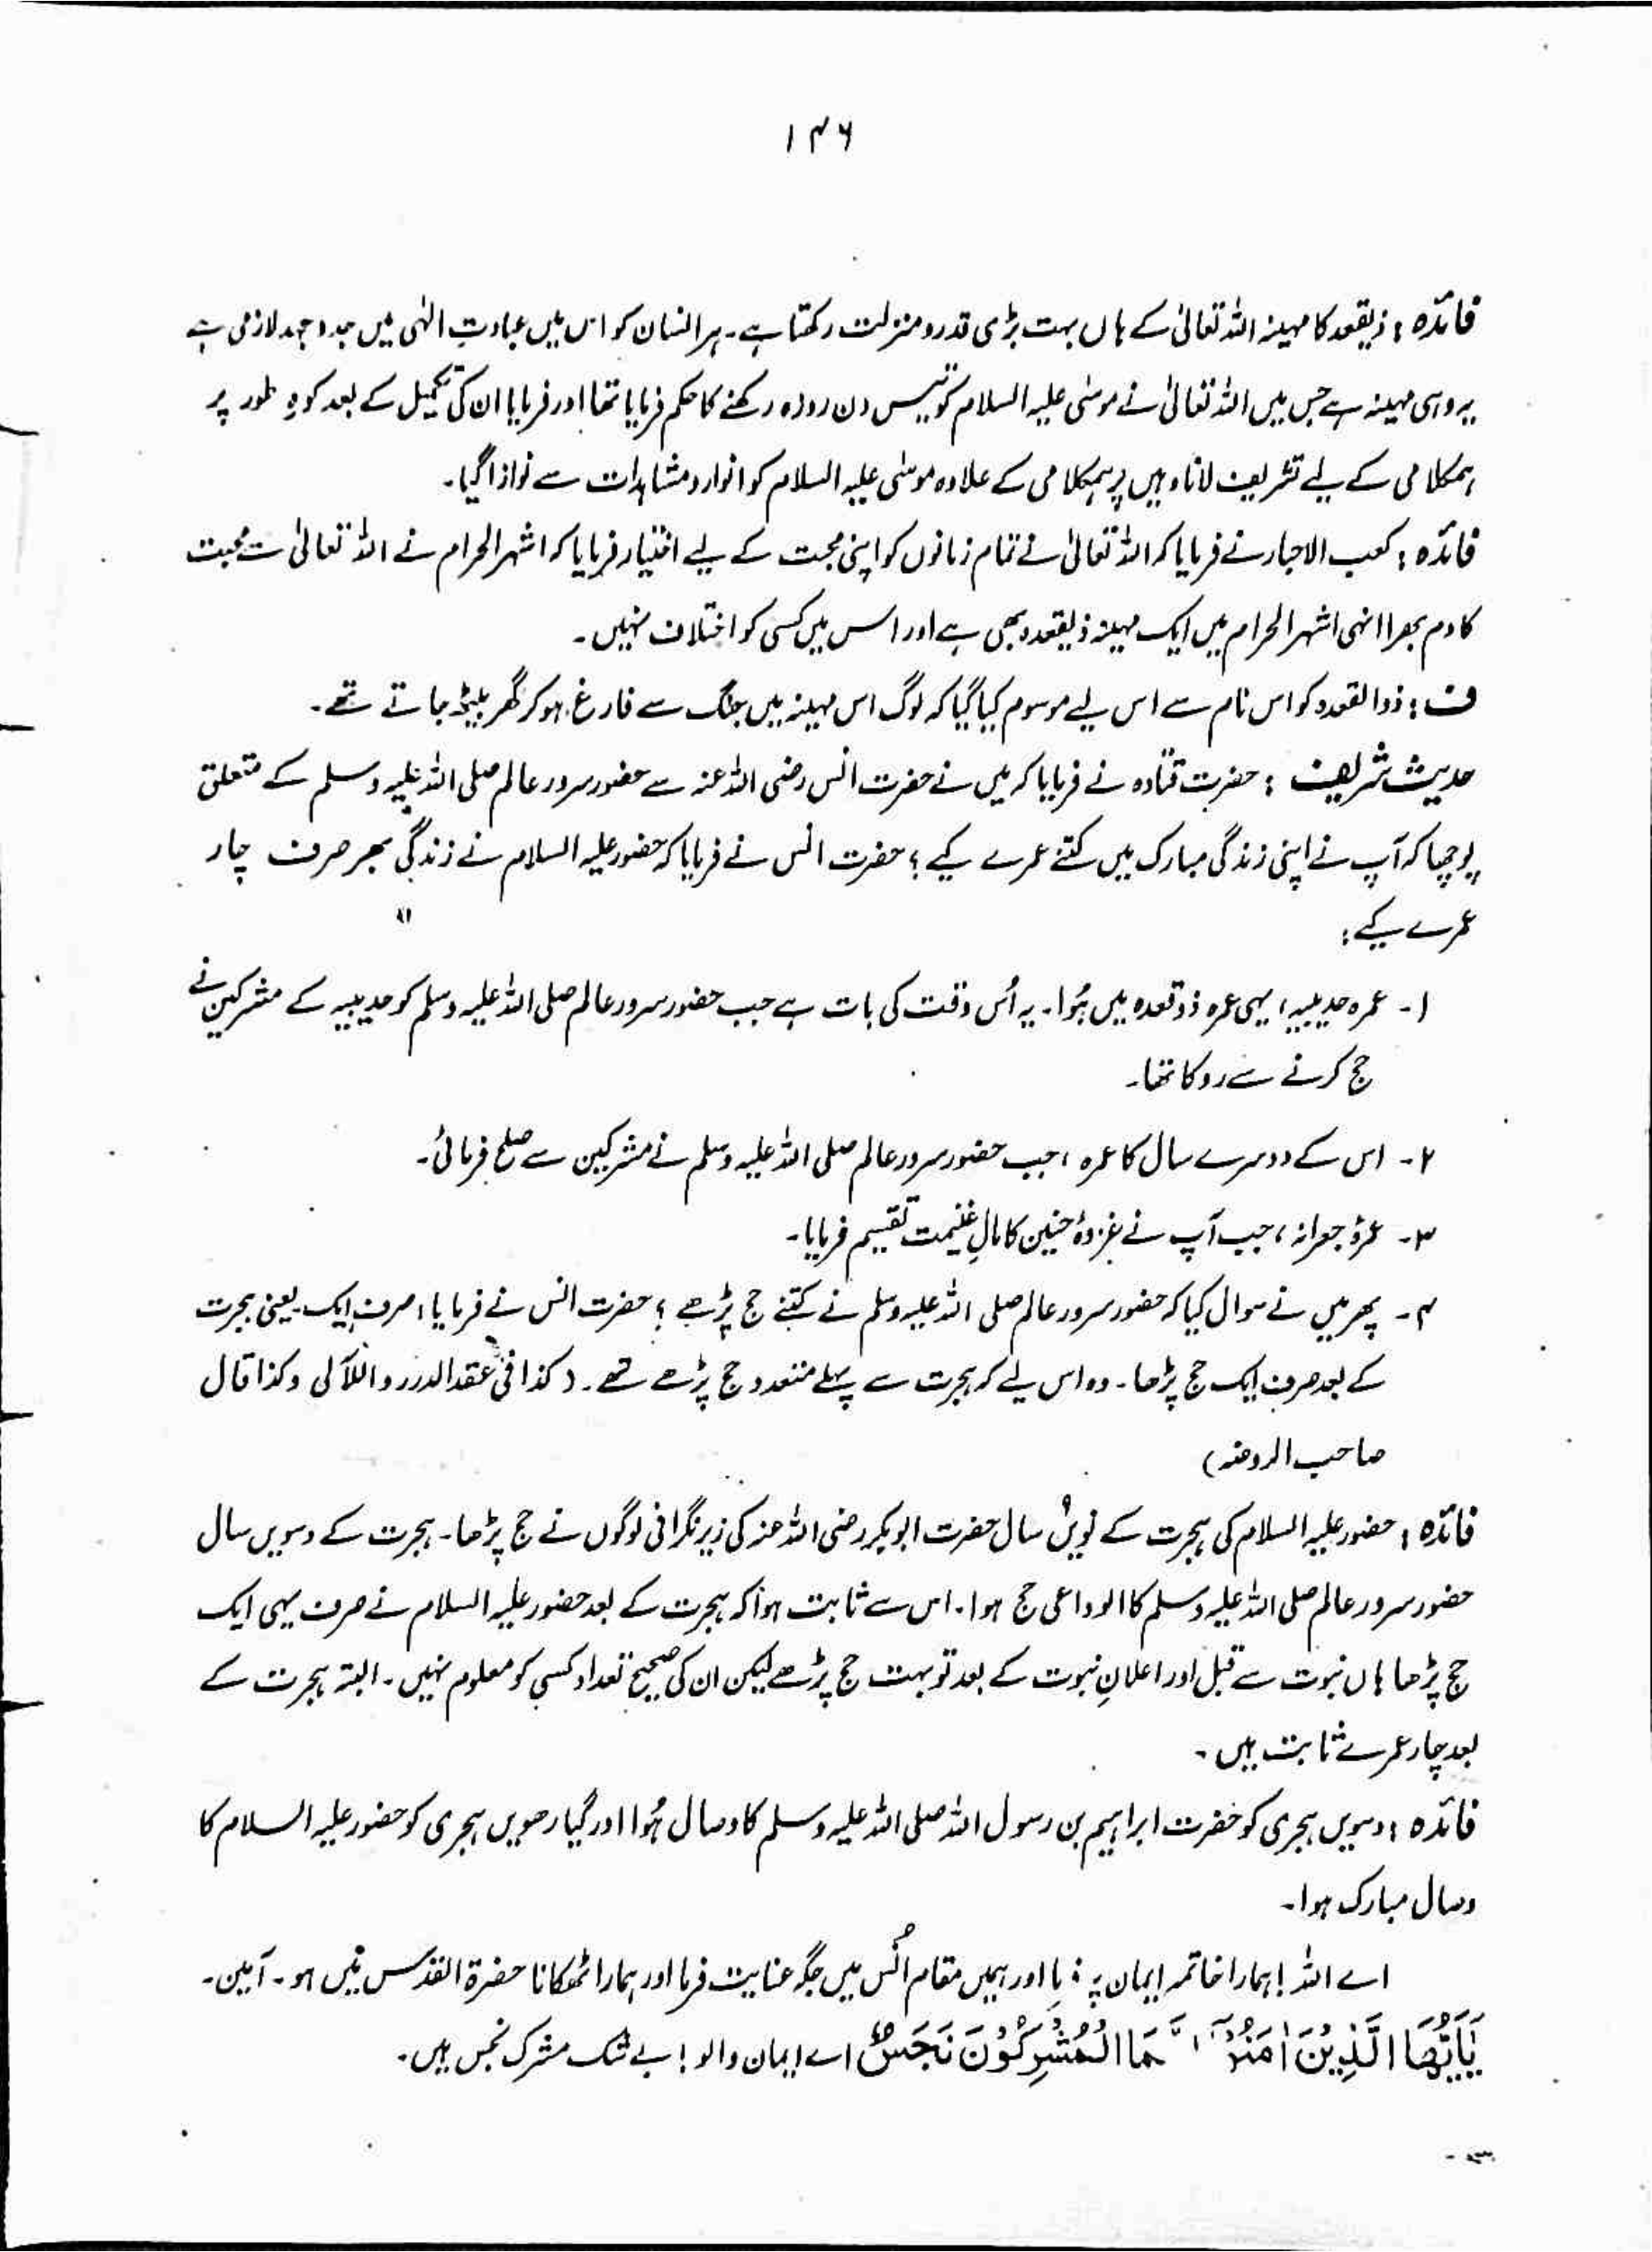 ۱۴۶
فائدہ : ذیقعد کا مہینہ اللہ تعالیٰ کے ہاں بہت بڑی قدر و منزلت رکھتا ہے۔ ہر انسان کو اس میں عبادتِ الٰہی میں جدوجہد لازمی ہے
یہ وہی مہینہ ہے جس میں اللہ تعالیٰ نے موسٰی علیہ السلام کو تیس دن روزہ رکھنے کا حکم فرمایا تھا اور فرمایا ان کی تکمیل کے بعد کوہِ طور پر
ہمکلامی کے لیے تشریف لانا وہیں پر ہمکلامی کے علاوہ موسٰی علیہ السلام کو انوار و مشاہدات سے نوازا گیا۔
فائدہ : کعب الاحبار نے فرمایا کہ اللہ تعالیٰ نے تمام زمانوں کو اپنی محبت کے لیے اختیار فرمایا کہ اشہر الحرام نے اللہ تعالیٰ سے محبت
کا دم بھرا انہی اشہر الحرام میں ایک مہینہ ذیقعدہ بھی ہے اور اس میں کسی کو اختلاف نہیں۔
ف : ذوالقعدہ کو اس نام سے اس لیے موسوم کیا گیا کہ لوگ اس مہینہ میں جنگ سے فارغ ہو کر گھر بیٹھ جاتے تھے۔
حدیث شریف : حضرت قتادہ نے فرمایا کہ میں نے حضرت انس رضی اللہ عنہ سے حضور سرور عالم صلی اللہ علیہ وسلم کے متعلق
پوچھا کہ آپ نے اپنی زندگی مبارک میں کتنے عمرے کیے ؟ حضرت انس نے فرمایا کہ حضور علیہ السلام نے زندگی بھر صرف چار
عمرے کیے :
۱۔ عمرہ حدیبیہ ، یہی عمرہ ذوقعدہ میں ہُوا۔ یہ اُس وقت کی بات ہے جب حضور سرور عالم صلی اللہ علیہ وسلم کو حدیبیہ کے مشرکین نے
حج کرنے سے روکا تھا۔
۲۔ اس کے دوسرے سال کا عمرہ ، جب حضور سرور عالم صلی اللہ علیہ وسلم نے مشرکین سے صلح فرمائی۔
۳۔ عمرۂ جعرانہ ، جب آپ نے غزوۂ حنین کا مالِ غنیمت تقسیم فرمایا۔
۴۔ پھر میں نے سوال کیا کہ حضور سرور عالم صلی اللہ علیہ وسلم نے کتنے حج پڑھے ؟ حضرت انس نے فرمایا ، صرف ایک یعنی ہجرت
کے بعد صرف ایک حج پڑھا۔ وہ اس لیے کہ ہجرت سے پہلے متعدد حج پڑھے تھے۔ (کذا فی عقد الدرر و اللآلی وکذا قال
صاحب الروضہ)
فائدہ : حضور علیہ السلام کی ہجرت کے نویں سال حضرت ابوبکر رضی اللہ عنہ کی زیر نگرانی لوگوں نے حج پڑھا۔ ہجرت کے دسویں سال
حضور سرور عالم صلی اللہ علیہ وسلم کا الوداعی حج ہوا۔ اس سے ثابت ہوا کہ ہجرت کے بعد حضور علیہ السلام نے صرف یہی ایک
حج پڑھا ہاں نبوت سے قبل اور اعلانِ نبوت کے بعد تو بہت حج پڑھے لیکن ان کی صحیح تعداد کسی کو معلوم نہیں۔ البتہ ہجرت کے
بعد چار عمرے ثابت ہیں۔
فائدہ : دسویں ہجری کو حضرت ابراہیم بن رسول اللہ صلی اللہ علیہ وسلم کا وصال ہُوا اور گیارھویں ہجری کو حضور علیہ السلام کا
وصال مبارک ہوا۔
اے اللہ ! ہمارا خاتمہ ایمان پر فرما اور ہمیں مقام اُنس میں جگہ عنایت فرما اور ہمارا ٹھکانا حضرۃ القدس میں ہو۔ آمین۔
یٰۤاَیُّهَا الَّذِیْنَ اٰمَنُوْۤا اِنَّمَا الْمُشْرِكُوْنَ نَجَسٌ اے ایمان والو ! بے شک مشرک نجس ہیں۔